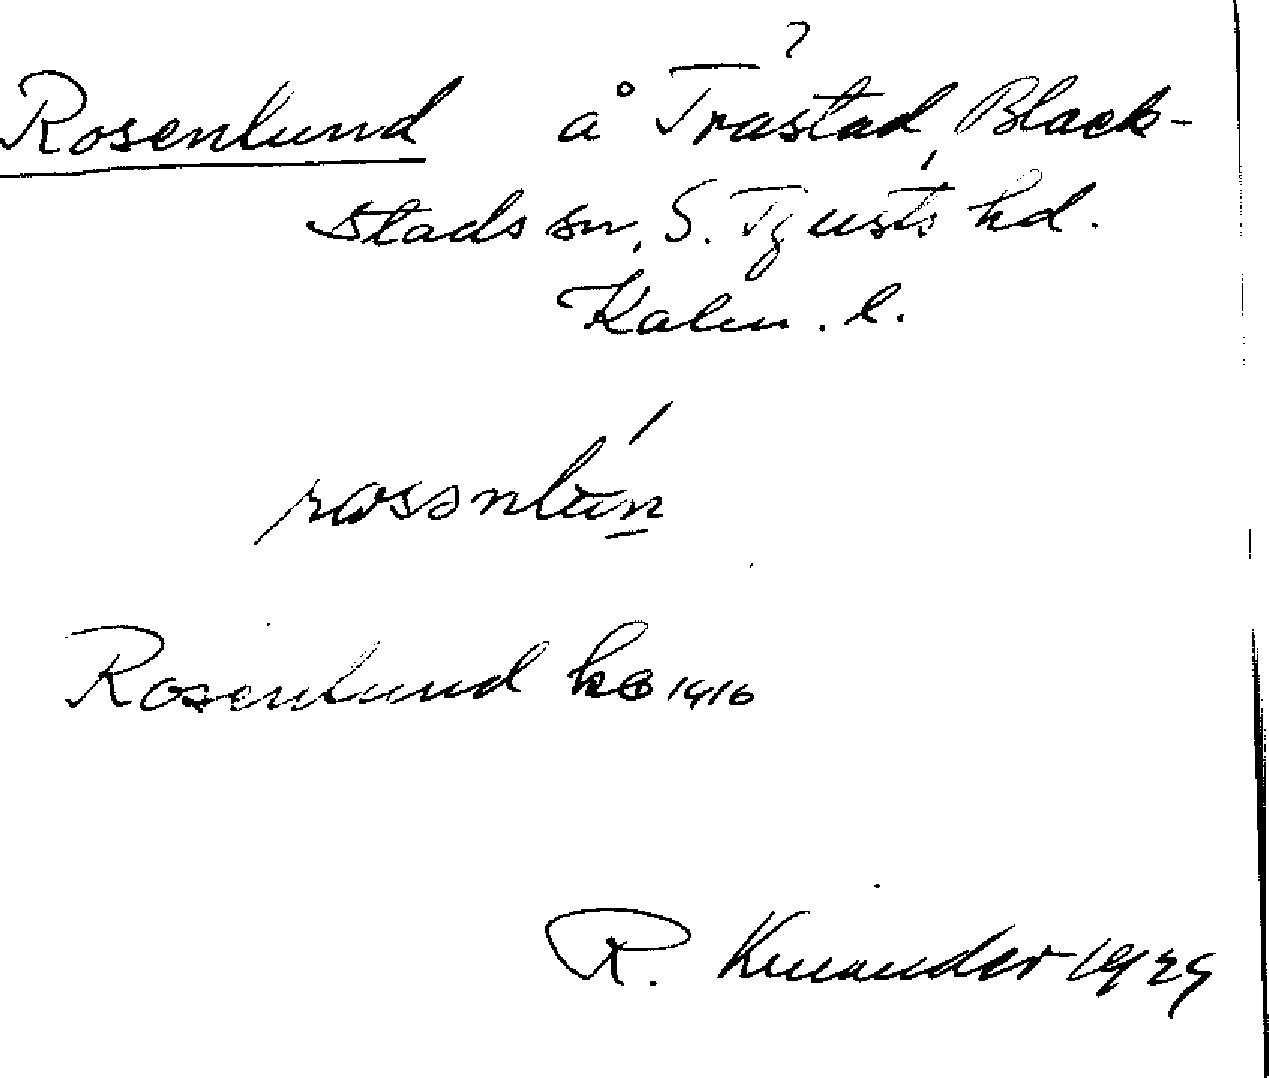 ?
Rosenlund å Tråstad, Black-
stads sn, S. Tjusts hd.
Kalm. l.
Rosenlund ks 1916
R. Kinander 1929